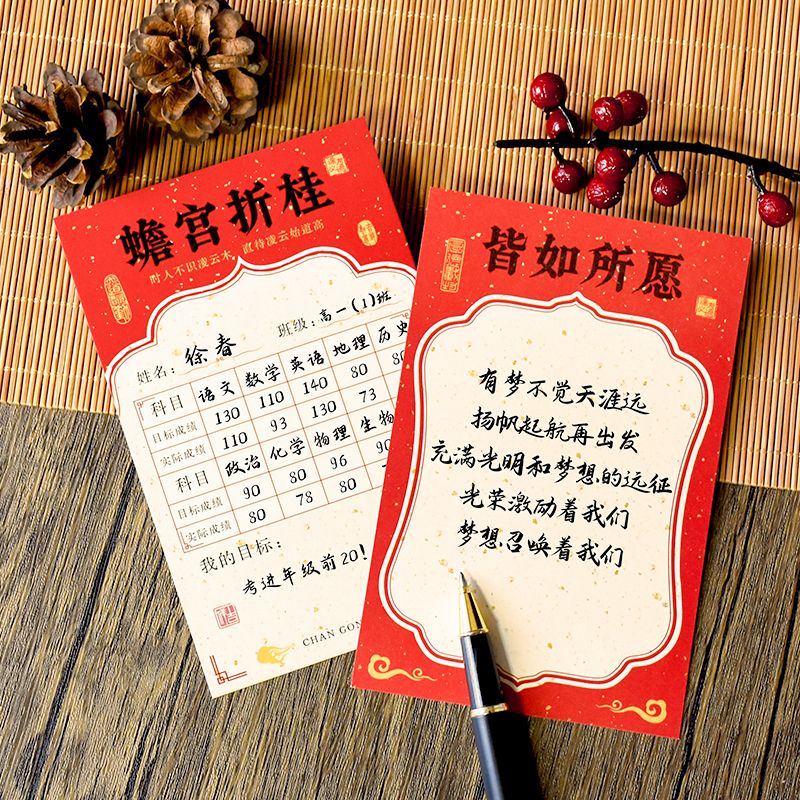 蟾宫折桂
时人不识凌云木，直待凌云始道高
姓名：徐春 班级：高一(1)班
科目 语文 数学 英语 地理 历史
目标成绩 130 110 140 80 80
实际成绩 110 93 130 73
科目 政治 化学 物理 生物
目标成绩 90 80 96 90
实际成绩 80 78 80
我的目标：
考进年级前20！
CHAN GON
皆如所愿
有梦不觉天涯远
扬帆起航再出发
充满光明和梦想的远征
光荣激励着我们
梦想召唤着我们